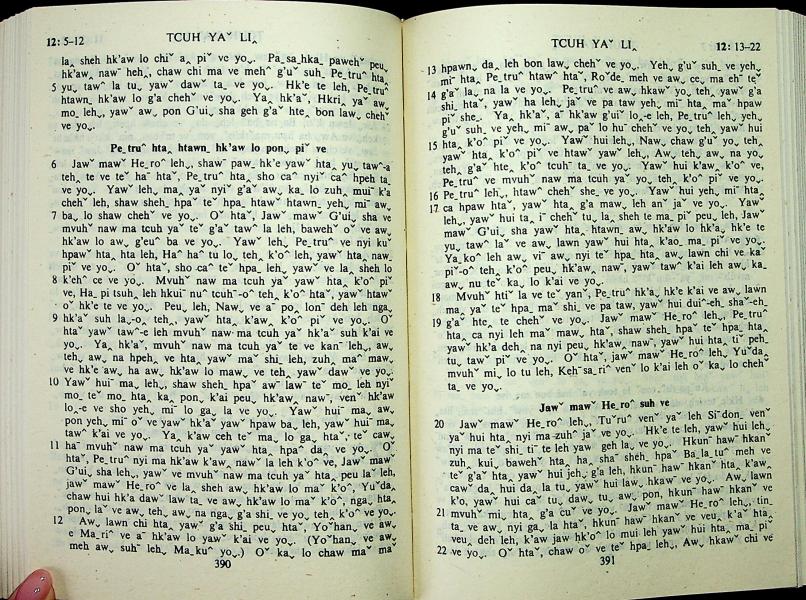 12: 5-12 TCUH YAˇ LI˰
la˰ sheh hk'aw lo chiˇ a˰ piˇ ve yo˯. Pa˗sa˗hka˗ pawehˇ peu˰
hk'aw˰ naw¯ heh˰, chaw chi ma ve mehˆ g'uˇ suh˗ Pe˗truˆ hta˰
5 yu˰ tawˆ la tu˰ yawˇ dawˇ ta˯ ve yo˯. Hk'e te leh, Pe˗truˆ
htawn˰ hk'aw lo g'a chehˇ ve yo˯. Ya˰ hk'aˇ, Hkri˰ yaˇ aw˯
mo˗ leh˯, yawˇ aw˯ pon G'ui˰ sha geh g'aˇ hte˰ bon law˰ chehˇ
ve yo˯.
Pe˗truˆ hta˰ htawn˰ hk'aw lo pon˯ piˇ ve
6 Jawˇ mawˇ He˗roˆ leh˯, shawˇ paw˰ hk'e yawˇ hta˰ yu˰ tawˆ-a
teh˰ te ve teˇ ha¯ htaˇ, Pe˗truˆ hta˰ sho caˆ nyiˇ caˆ hpeh ta˰
ve yo˯. Yawˇ leh˯, ma˰ yaˇ nyiˇ g'aˇ aw˰ ka˰ lo zuh˰ muiˇ k'a
chehˇ leh, shaw sheh˰ hpaˇ teˇ hpa˰ htawˇ htawn˰ yeh˰ miˇ aw˰
7 ba˰ lo shaw chehˇ ve yo˯. Oˇ htaˇ, Jawˇ mawˇ G'ui˰ sha ve
mvuhˇ naw ma tcuh yaˇ teˇ g'aˇ tawˆ la leh˰, bawehˇ oˇ ve aw˰
hk'aw lo aw˰ g'euˆ ba ve yo˯. Yawˇ leh˯, Pe˗truˆ ve nyi kuˇ
hpawˇ hta˰ hta leh, Haˆ haˆ tu lo˯, teh˰ k'o˰ leh, yawˇ hta˰ naw˰
piˇ ve yo˯. Oˇ htaˇ, sho˰ca˰ teˇ hpa˗ leh˯, yawˇ ve la˰ sheh lo
8 k'ehˆ ce ve yo˯. Mvuhˇ naw ma tcuh yaˇ yawˇ hta˰ k'oˆ piˇ
ve, Ha˰ pi tsuh˰ leh hkuiˉ nuˆ tcuhˉ-oˆ teh˰ k'oˆ htaˇ, yawˇ htawˇ
oˇ hk'e te ve yo˯. Peu˰ leh, Naw˯ ve aˇ po˰ lonˉ deh leh nga˰
9 hk'aˇ suh la˰-o˰ teh˰ yawˇ hta˰ k'aw˰ k'oˆ piˇ ve yo˯. Oˇ
htaˇ yawˇ tawˆ-e leh mvuhˇ naw ma tcuh yaˇ hk'aˇ suh k'ai ve
yo˯. Ya˰ hk'aˇ, mvuhˇ naw ma tcuh yaˇ te ve kanˉ leh˯, aw˯
teh˰ aw˰ na hpeh˰ ve hta˰ yawˇ ma˰ shi˰ leh, zuh˰ maˆ maw˯
ve hk'e aw˰ ha aw˰ hk'aw lo maw˯ ve teh˰ yawˇ daw˯ ve yo˯.
10 Yawˇ huiˉ ma˰ leh˯, shaw sheh˰ hpaˇ awˇ lawˇ teˇ mo˗ leh nyiˇ
mo˗ teˇ mo˗ hta˰ ka˰ pon˰ k'ai peu˰ hk'aw˰ nawˉ, venˇ hk'aw
lo˰-e ve sho yeh˰ mi˗ lo ga˰ la ve yo˯. Yawˇ huiˉ ma˰ aw˯
pon yeh˰ miˉ oˇ ve yawˇ hk'aˇ yawˇ hpaw ba˰ leh, yawˇ hui ma˰
tawˆ k'ai ve yo˯. Ya˰ k'aw ceh teˇ ma˰ lo ga˰ htaˇ, teˇ caw˰
11 haˉ mvuhˇ naw ma tcuh yaˇ yawˇ hta˰ hpaˆ da˰ ve yo˯. Oˇ
htaˇ, Pe˗truˆ nyi ma hk'aw k'aw˰ nawˇ la leh k'oˆ ve, Jawˇ mawˇ
G'ui˰ sha leh˯, yawˇ ve mvuhˇ naw ma tcuh yaˇ hta˰ peu laˇ leh,
jawˇ mawˇ He˗roˆ ve la˰ sheh aw˰ hk'aw lo maˇ k'oˆ, Yuˇda˰
chaw hui hk'a dawˇ law ta˰ ve aw˰ hk'aw lo maˇ k'oˆ, nga˰ hta˰
pon˰ laˇ ve aw˯ teh˰ aw˰ na nga˰ g'a shi˰ ve yo˯ teh˰ k'oˆ ve yo˯.
12 Aw˰ lawn chi hta˰ yawˇ g'a shi˰ peu˰ htaˇ, Yoˇhan˰ ve aw˯
e Ma˗riˆ ve aˉ hk'aw lo yawˇ k'ai ve yo˯. (Yoˇhan˰ ve aw˯
meh aw˰ suhˉ leh˯ Ma˗kuˆ yo˯.) Oˇ ka˰ lo chaw maˇ maˉ
390
TCUH YAˇ LI˰ 12: 13-22
13 hpawn˯ da˰ leh bon law˰ chehˇ ve yo˯. Yeh˰ g'uˇ suh˗ ve yeh˰
miˉ hta˰ Pe˗truˆ htawˆ htaˇ, Roˇde˗ meh ve aw˰ ce˰ ma ehˉ teˇ
14 g'aˇ la˰ na la ve yo˯. Pe˗truˆ ve aw˰ hkawˇ yo˯ teh˰ yawˇ g'a
shi˰ htaˇ, yawˇ ha leh˰ jaˇ ve pa taw yeh˰ miˉ hta˰ maˇ hpaw
piˇ she˗. Ya˰ hk'aˇ, aˇ hk'aw g'uiˇ lo˰-e leh, Pe˗truˆ leh˯ yeh˰
g'uˇ suh˗ ve yeh˰ miˇ aw˰ paˇ lo huˆ chehˇ ve yo˯ teh˰ yawˇ hui
15 hta˰ k'oˆ piˇ ve yo˯. Yawˇ hui leh˯, Naw˯ chaw g'uˇ yo˯ teh˰
yawˇ hta˰ k'oˆ piˇ ve htawˇ yawˇ leh˯, Aw˯ teh˰ aw˰ na yo˯
teh˰ g'aˇ hte˰ k'oˆ tcuhˉ ta˯ ve yo˯. Yawˇ hui k'aw˰ k'oˆ ve,
Pe˗truˆ ve mvuhˇ naw ma tcuh yaˇ yo˯ teh˰ k'oˆ piˇ ve yo˯.
16 Pe˗truˆ leh˯, htawˇ cawˇ chehˇ she˗ ve yo˯. Yawˇ hui yeh˰ miˉ hta˰
17 ca hpaw htaˇ, yawˇ hta˰ g'a maw˰ leh anˇ jaˇ ve yo˯. Yawˇ
leh˯, yawˇ hui ta˰ iˉ chehˇ tu˰ la˰ sheh te ma˰ piˇ peu˰ leh, Jawˇ
mawˇ G'ui˰ sha yawˇ hta˰ htawn˰ aw˰ hk'aw lo hk'a˰ hk'e te
yu˰ tawˆ laˇ ve aw˰ lawn yawˇ hui hta˰ k'ao˰ ma˰ piˇ ve yo˯.
Ya˗koˆ leh aw˰ viˉ aw˰ nyi teˇ hpa˰ hta˰ aw˰ lawn chi ve kaˇ
piˇ-oˆ teh˰ k'oˆ peu˰ hk'aw˰ nawˉ, yawˇ tawˆ k'ai leh aw˰ ka˰
aw˰ nu teˇ ka˰ lo k'ai ve yo˯.
18 Mvuhˇ htiˇ la ve teˇ yanˇ, Pe˗truˆ hk'a˰ hk'e k'ai ve aw˰ lawn
ma˰ yaˇ teˇ hpa˰ maˇ shi˰ ve pa taw, yawˇ hui duiˆ-eh˰ shaˇ-eh˰
19 g'aˇ hte˰ te chehˇ ve yo˯. Jawˇ mawˇ He˗roˆ leh˯, Pe˗truˆ
hta˰ ca nyi leh maˇ mawˇ htaˇ, shaw sheh˰ hpaˇ teˇ hpa˰ hta˰
yawˇ hk'a deh˰ na nyi peu˰ hk'aw˰ nawˉ, yawˇ hui hta˰ tiˇ peh˰
tu˰ tawˇ piˇ ve yo˯. Oˇ htaˇ, jawˇ mawˇ He˗roˆ leh˯, Yuˇda˰
mvuhˇ mi˰ lo tu leh, Keh˗sa˗riˆ venˇ lo k'ai leh oˇ ka˰ lo cheh
ta˯ ve yo˯.
Jawˇ mawˇ He˗roˆ suh ve
20 Jawˇ mawˇ He˗roˆ leh˯, Tuˇruˆ venˇ yaˇ leh Siˇdon˰ venˇ
yaˇ hui hta˰ nyi ma-zuhˆ jaˇ ve yo˯. Hk'e te leh, yawˇ hui leh˯
nyi ma teˇ shi˰ tiˉ te leh yaw˰ geh la˰ ve yo˯. Hkunˉ hawˉ hkanˇ
zuh˰ kui˰ bawehˇ hta˰ ha˰ shaˇ sheh˰ hpaˇ Ba˗la˗tuˆ meh ve
teˇ g'aˇ hta˰ yawˇ hui jeh˰ g'a leh, hkunˉ hawˉ hkanˇ hta˰ k'aw˰
cawˇ da˰ hui da˰ la tu˰ yawˇ hui law˰ hkawˇ ve yo˯. Aw˰ lawn
k'o˰ yawˇ hui caˇ tu˰ daw˰ tu˰ aw˰ pon˰ hkunˉ hawˉ hkanˇ ve
21 mvuhˇ mi˰ hta˰ g'a cuˇ ve yo˯. Jawˇ mawˇ He˗roˆ leh˯, tin˰
ta˯ ve aw˰ nyi ga˰ la htaˇ, hkunˉ hawˉ hkanˇ ve veu˰ k'aˇ hta˰
veu˰ deh leh, k'aw jaw hk'oˆ lo mui leh yawˇ hui hta˰ ma˰ piˇ
22 ve yo˯. Oˇ htaˇ, chaw oˇ ve teˇ hpa˗ leh˯, Aw˰ hkawˇ chi ve
391